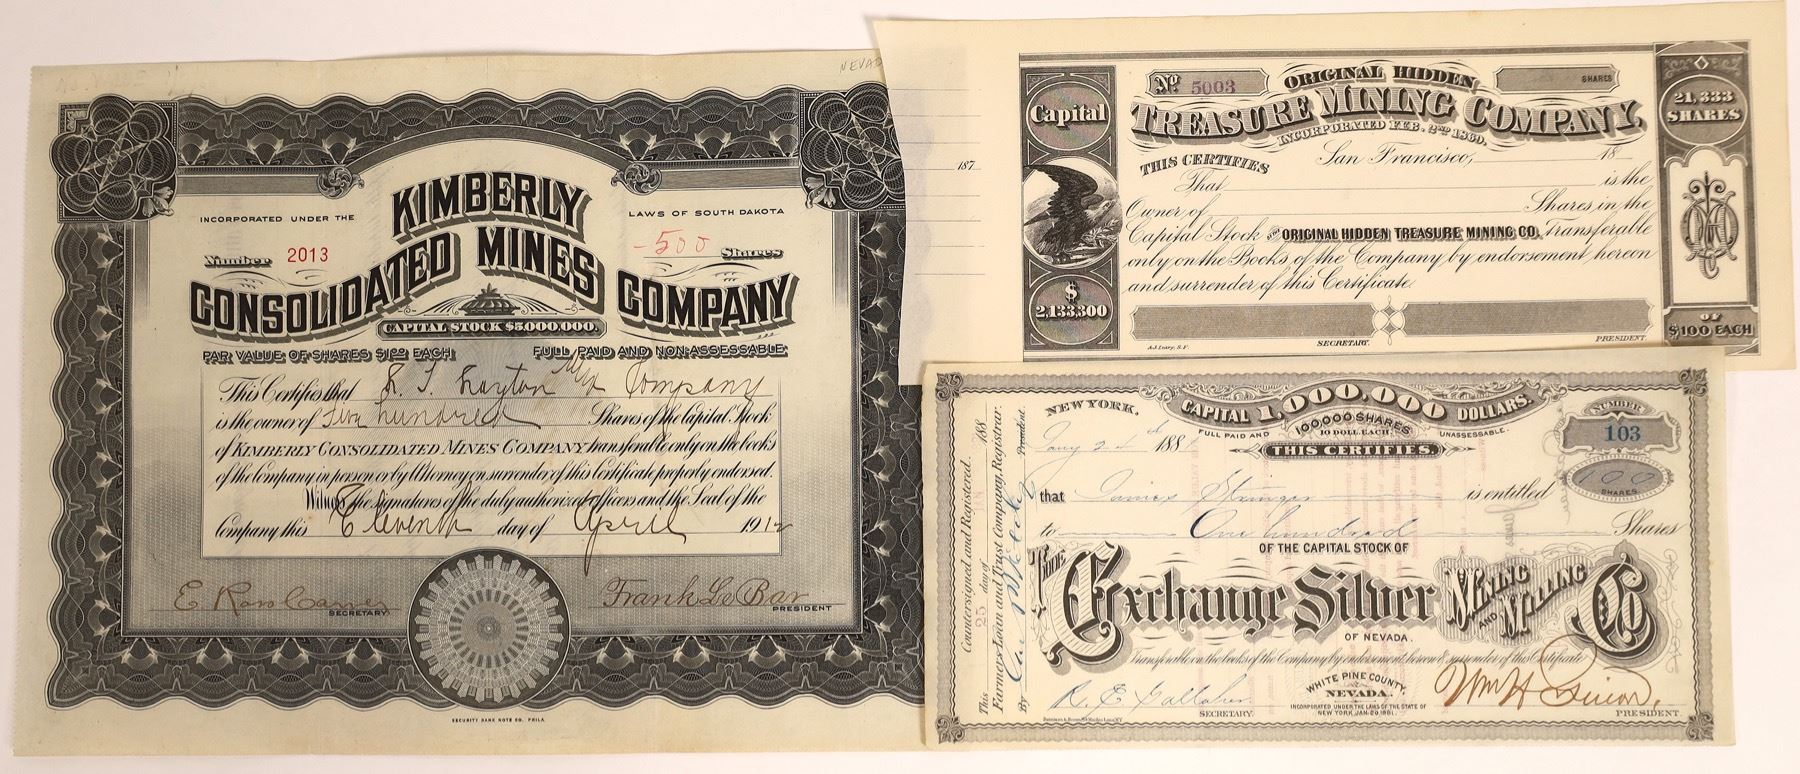 NEVAD
INCORPORATED UNDER THE
LAWS OF SOUTH DAKOTA
KIMBERLY
CONSOLIDATED MINES COMPANY
Number 2013
500 Shares
CAPITAL STOCK $5,000,000.
PAR VALUE OF SHARES $1.00 EACH
FULL PAID AND NON-ASSESSABLE
This Certifies that Layton Company
is the owner of five hundred Shares of the Capital Stock
of KIMBERLY CONSOLIDATED MINES COMPANY transferable only on the books
of the Company in person or by Attorney on surrender of this Certificate properly endorsed.
Witness the signatures of the duly authorized officers and the Seal of the
Company this Eleventh day of April 1912
E Ross
SECRETARY
Frank Le Bar
PRESIDENT
SECURITY BANK NOTE CO. PHILA.
187
Capital
$
2,133,300
No. 5003
ORIGINAL HIDDEN
TREASURE MINING COMPANY.
INCORPORATED FEB. 2ND 1869.
SHARES
21,333
SHARES
OF
$100 EACH
THIS CERTIFIES
San Francisco, 18
That is the
Owner of Shares in the
Capital Stock of the ORIGINAL HIDDEN TREASURE MINING CO. Transferable
only on the Books of the Company by endorsement hereon
and surrender of this Certificate.
SECRETARY.
PRESIDENT.
A.J. Leary, S.F.
Countersigned and Registered.
This 25 day of 188
Farmers Loan and Trust Company, Registrar.
By President.
NEW YORK.
CAPITAL 1,000,000 DOLLARS.
FULL PAID AND
100,000 SHARES
10 DOLL. EACH
UNASSESSABLE.
NUMBER
103
188
THIS CERTIFIES.
100
SHARES
that James is entitled
to One hundred Shares
OF THE CAPITAL STOCK OF
THE Exchange Silver MINING AND MILLING Co
OF NEVADA.
Transferable on the books of the Company by endorsement hereon & surrender of this Certificate
WHITE PINE COUNTY,
NEVADA.
INCORPORATED UNDER THE LAWS OF THE STATE OF
NEW YORK, JAN. 20, 1881.
SECRETARY.
Wm H
PRESIDENT